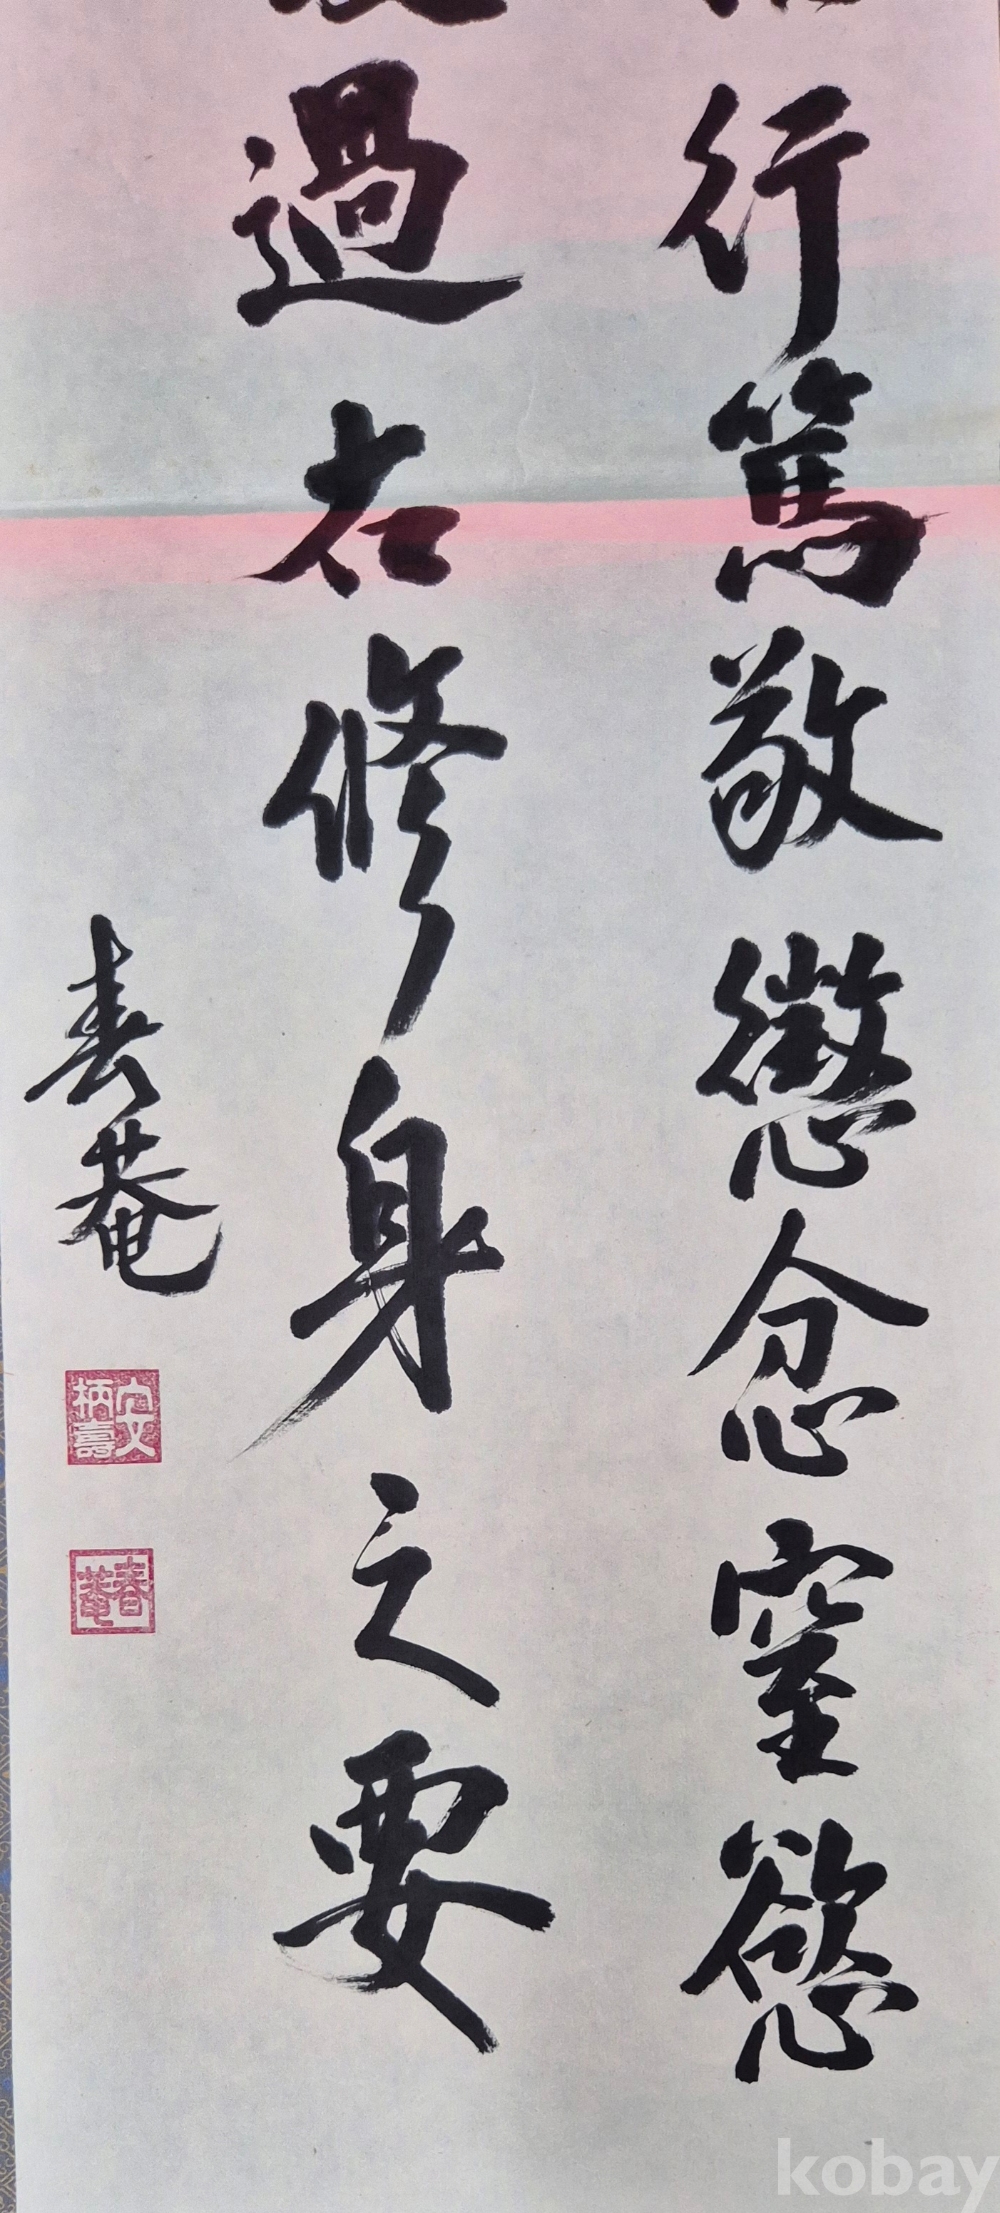 行篤敬懲忿窒慾
過右修身之要
春菴
春菴
kobay